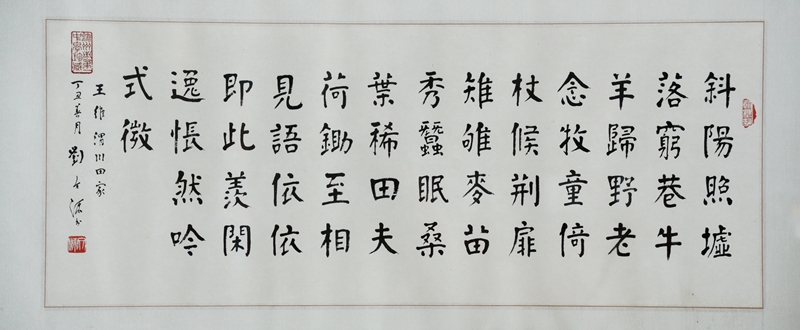 斜陽照墟
落窮巷牛
羊歸野老
念牧童倚
杖候荆扉
雉雊麥苗
秀蠶眠桑
葉稀田夫
荷鋤至相
見語依依
即此羨閑
逸悵然吟
式微
王維渭川田家
丁丑春月劉